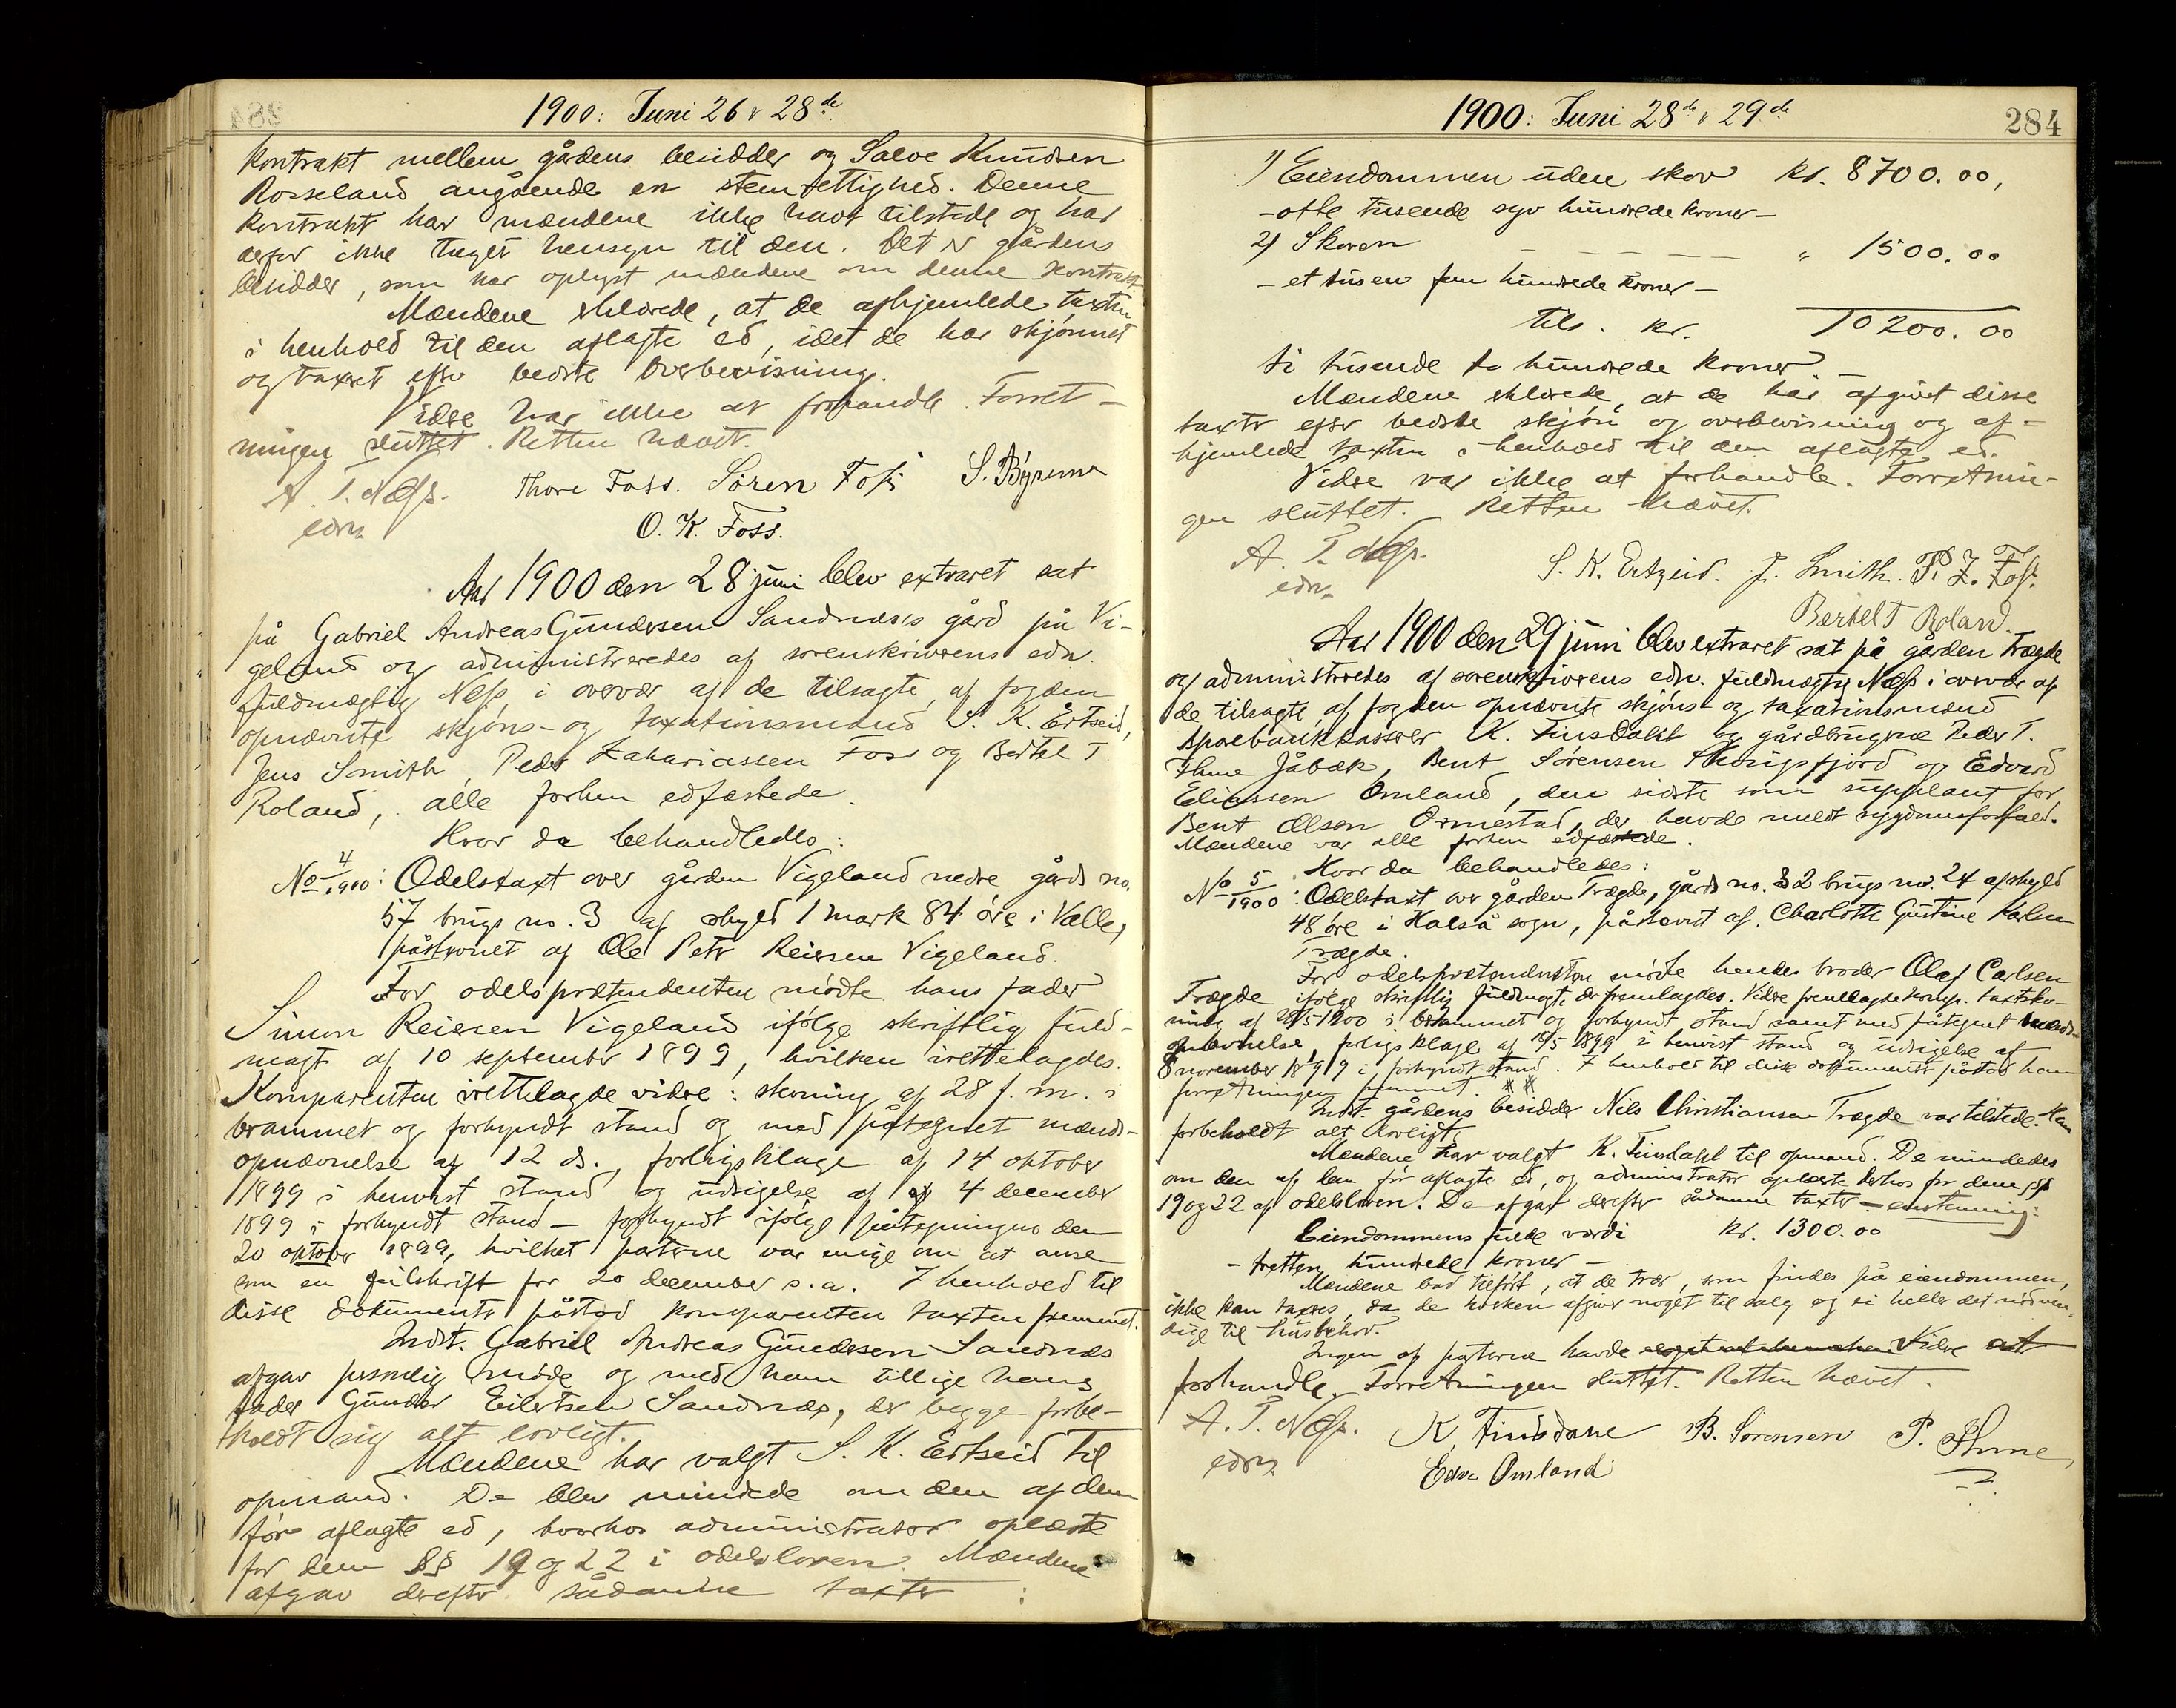 1900: Juni 26 & 28de
kontrakt mellem gårdens besidder og Salve Knudsen
Rosseland angående en stemrettighed. Denne
kontrakt har mændene ikke havt tilstede og har
derfor ikke taget hensyn til den. Det er gårdens
besidder, som har oplyst mændene om denne kontrakt.
Mændene erklærede, at de afhjemlede taxten
i henhold til den aflagte ed, idet de har skjønnet
og taxeret efter bedste overbevisning.
Videre var ikke at forhandle. Forret-
ningen sluttet. Retten hævet.
A. T. Næss. Thore Foss. Sören Foss S. Byremo
edsv. O. K. Foss.
Aar 1900 den 28 juni blev extraret sat
på Gabriel Andreas Gundersen Sandnæs's gård på Vi-
geland og administreredes af sorenskriverens edsv.
fuldmægtig Næss i overvær af de tilsagte af fogden
opnævnte skjøns- og taxationsmænd S. K. Ertseid,
Jens Smith, Peder Zakariassen Foss og Bertel T
Roland, alle forhen edfæstede.
Hvor da behandledes:
No 4/1900: Odelstaxt over gården Vigeland nedre gårds no.
57 brugs no. 3 af skyld 1 mark 84 øre i Valle,
påstevnet af Ole Peter Reiersen Vigeland.
For odelsprætendenten mødte hans fader
Simon Reiersen Vigeland ifølge skriftlig fuld-
magt af 10 september 1899, hvilken irettelagdes.
Komparenten irettelagde videre: stevning af 28 f. m. i
brammet og forkyndt stand og med påtegnet mænds-
opnævnelse af 12 ds., forligsklage af 14 oktober
1899 i henvist stand og udsigelse af 4 december
1899 i forkyndt stand – forkyndt ifølge påtegningen den
20 oktober 1899, hvilket parterne var enige om at anse
som en feilskrift for 20 december s. a. I henhold til
disse dokumenter påstod komparenten taxten fremmet.
Indst. Gabriel Andreas Gundersen Sandnæs
afgav personlig møde og med ham tillige hans
fader Gunder Eilertsen Sandnæs, der begge forbe-
holdt sig alt lovligt.
Mændene har valgt S. K. Ertseid til
opmand. De blev mindede om den af dem
før aflagte ed, hvorhos administrator oplæste
for dem §§ 19 og 22 i odelsloven. Mændene
afgav derefter sådanne taxter:
1900: Juni 28de & 29de
284
1) Eiendommen uden skov kr. 8700.00,
- otte tusende syv hundrede kroner -
2) Skoven - - - - „ 1500.00
- et tusen fem hundrede kroner -
tils. kr. 10200.00
ti tusende to hundrede kroner -
Mændene erklærede, at de har afgivet disse
taxter efter bedste skjøn og overbevisning og af-
hjemlede taxten i henhold til den aflagte ed.
Videre var ikke at forhandle. Forretnin-
gen sluttet. Retten hævet.
A. T. Næss. S. K. Ertzeid. J. Smith. P. Z. Foss.
edsv. Bertel T Roland.
Aar 1900 den 29 juni blev extraret sat på gården Trægde
og administreredes af sorenskriverens edsv. fuldmægtig Næss i overvær af
de tilsagte af fogden opnævnte skjøns- og taxationsmænd
sparebankkasserer K. Finsdahl og gårdbrugerne Peder T.
Ihme Jåbæk, Bent Sørensen Skogsfjord og Edvard
Eliassen Omland, den sidste som supplant for
Bent Olsen Ormestad, der havde meldt sygdomsforfald.
Mændene var alle forhen edfæstede.
Hvor da behandledes:
No 5/1900: Odelstaxt over gården Trægde, gårds no. 32 brugs no. 24 af skyld
48 øre i Halså sogn, påstevnt af Charlotte Gustine Karlsen
Trægde.
For odelsprætendenten mødte hendes broder Olaf Carlsen
Trægde ifølge skriftlig fuldmagt, der fremlagdes. Videre fremlagde komp. taxtstev-
ning af 28/5 1900 i brammet og forkyndt stand samt med påtegnet mænds-
opnævnelse, forligsklage af 18/5 1899 i henvist stand og udsigelse af
8 november 1899 i forkyndt stand. I henhold til disse dokumenter påstod han
forretningen fremmet.
Indst. gårdens besidder Nils Christiansen Trægde var tilstede. Han
forbeholdt alt lovligt.
Mændene har valgt K. Finsdahl til opmand. De mindedes
om den af dem før aflagte ed, og administrator oplæste derhos for dem §§
19 og 22 af odelsloven. De afgav derefter sådanne taxter – enstemmig:
Eiendommens fulde værdi kr. 1300.00
- tretten hundrede kroner -
Mændene bad tilført, at de trær, som findes på eiendommen,
ikke kan taxeres, da de hverken afgiver noget til salg og ei heller det nødven-
dige til husbehov.
Ingen af parterne havde videre at
forhandle. Forretningen sluttet. Retten hævet.
A. T. Næss. K. Finsdahl B. Sörensen P. Ihme
edsv. Edv. Omland